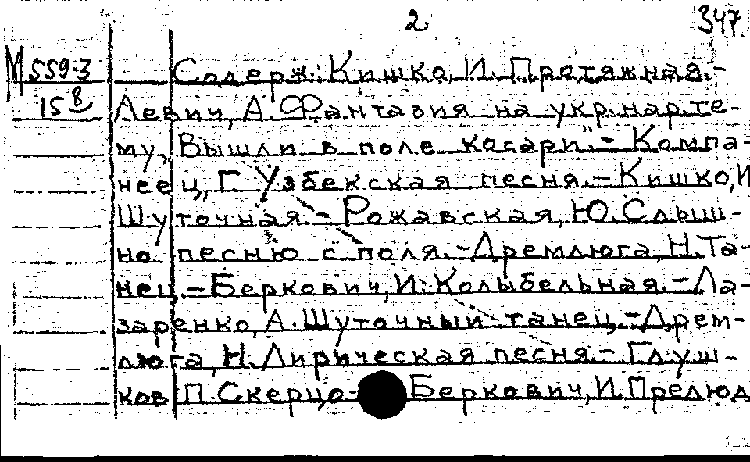 2
347
М 559-3 Содерж.: Кишко, И. Протяжная.-
15в Левич, А. Фантазия на укр.нар.те-
му "Вышли в поле косари".- Компа-
неец, Г. Узбекская песня.- Кишко, И
Шуточная.- Рожавская, Ю. Слыш-
но песню с поля.- Дремлюга, Н. Та-
нец.- Беркович, И. Колыбельная.- Ла-
заренко, А. Шуточный танец.- Дрем-
люга, Н. Лирическая песня.- Глуш-
ков П. Скерцо.- Беркович, И. Прелюд